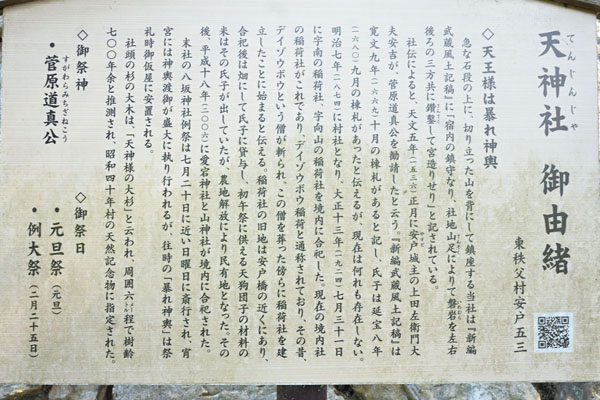 天神社 御由緒
てんじんじゃ
東秩父村安戸五三
◇天王様は暴れ神輿
急な石段の上に、切り立った山を背にして鎮座する当社は『新編
武蔵風土記稿』に「宿内の鎮守なり、社地山足によりて磐岩を左右
後ろの三方共に鑽鑿して宮造りせり」と記されている。
社伝によると、天文五年(一五三六)正月に安戸城主の上田左衛門大
夫安吉が、菅原道真公を勧請したと云う。『新編武蔵風土記稿』は
寛文九年(一六六九)十月の棟札があると記し、氏子は延宝八年
(一六八〇)九月の棟札があったと伝えるが、現在は何れも存在しない。
明治七年(一八七四)に村社となり、大正十三年(一九二四)七月三十一日
に字南の稲荷社、字向山の稲荷社を境内に合祀した。現在の境内社
の稲荷社がこれであり、デイゾウボウ稲荷と通称されており、その昔、
デイゾウボウという僧が斬られ、この僧を葬った傍らに稲荷社を建
立したことに始まると伝える。稲荷社の旧地は安戸橋の近くにあり、
合祀後は畑にして氏子に貸与し、初午祭に供える天狗団子の材料の
米はその氏子が出していたが、農地解放により民有地となった。その
後、平成十八年(二〇〇六)に愛宕神社と山神社が境内に合祀された。
末社の八坂神社例祭は七月二十日に近い日曜日に斎行され、宵
宮には神輿渡御が盛大に執り行われるが、往時の「暴れ神輿」は祭
礼時御仮屋に安置される。
社頭の杉の大木は、「天神様の大杉」と云われ、周囲六㍍程で樹齢
七〇〇年余と推測され、昭和四十年村の天然記念物に指定された。
◇御祭神
・菅原道真公
すがわらみちざねこう
◇御祭日
・元旦祭(元旦)
・例大祭(二月二十五日)